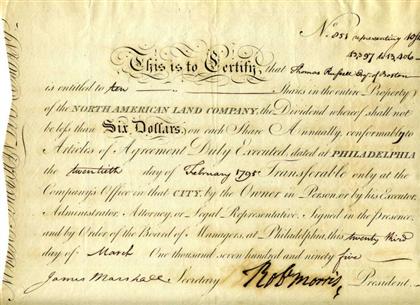 No. 851 representing 10 Sh
13,397 to 13,406
This is to Certify, that Thomas Russell Esqr. of Boston
is entitled to ten Shares in the entire Property
of the NORTH AMERICAN LAND COMPANY, the Dividend whereof shall not
be less than Six Dollars, on each Share Annually, conformably to
Articles of Agreement Duly Executed, dated at PHILADELPHIA
the twentieth day of February 1795 Transferable only at the
Company's Office in that CITY, by the Owner in Person, or by his Executor,
Administrator, Attorney, or Legal Representative. Signed in the presence,
and by Order of the Board of Managers, at Philadelphia, this twenty third
day of March One thousand seven hundred and ninety five
James Marshall Secretary Robt Morris, President